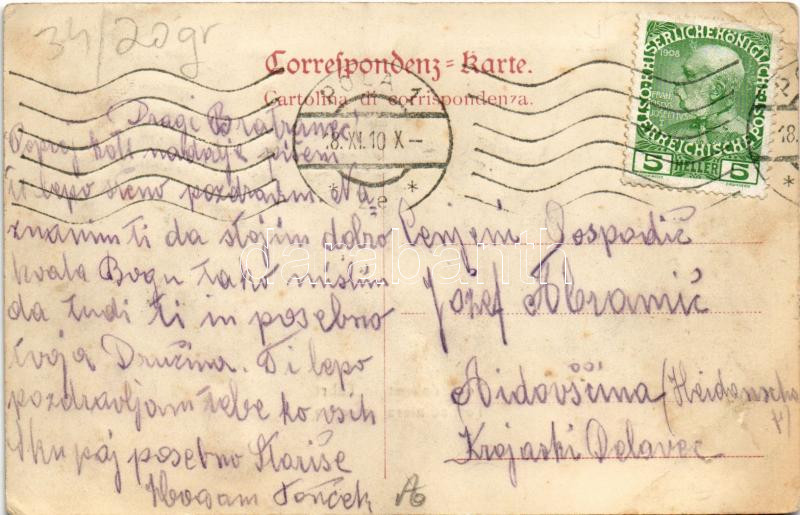 34/20gr
Correspondenz-Karte.
Cartolina di corrispondenza.
POLA 1
18. XI. 10 X
* e *
KAISERLICHE KÖNIGLICHE ÖSTERREICHISCHE POST
1908
5 HELLER 5
Dragi Bratranec
Poprej kot naldaje pišem
Ti lepo vēno pozdravim Na=
znanim ti da stojim dobro
hvala Bogu tako mislim
da tudi ti in posebno
tvoja Družina. Ti lepo
pozdravljam tebe ko vsih
skupaj posebno Stariše
Tonček
Cenjeni Gospodič
Jožef Abramič
Aidovščina (Heidenscha
ft)
Krojaski Delavec
darabanth